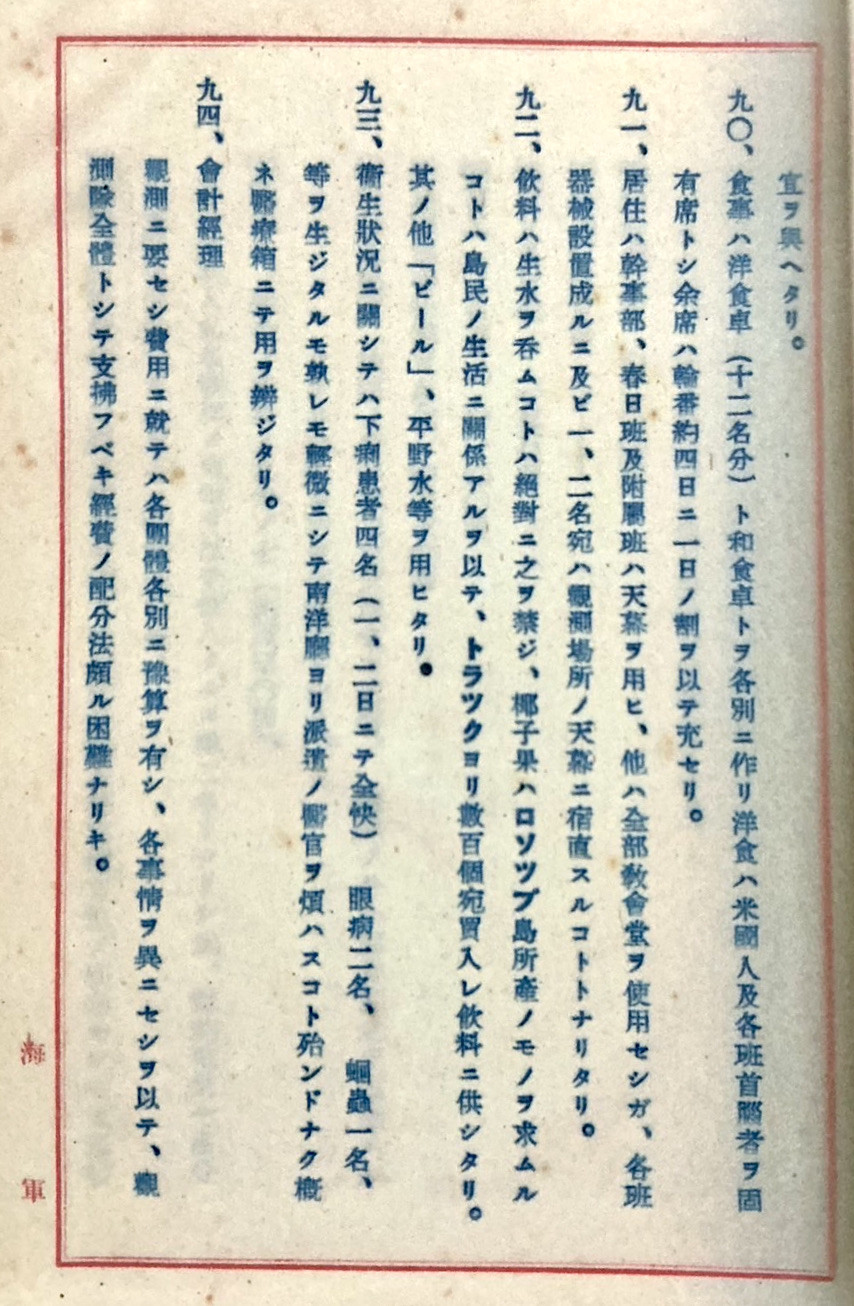 宜ヲ與ヘタリ。
九〇、食事ハ洋食卓(十二名分)ト和食卓トヲ各別ニ作リ洋食ハ米國人及各班首腦者ヲ固
有席トシ余席ハ輪番約四日ニ一日ノ割ヲ以テ充セリ。
九一、居住ハ幹事部、春日班及附屬班ハ天幕ヲ用ヒ、他ハ全部敎會堂ヲ使用セシガ、各班
器械設置成ルニ及ビ一、二名宛ハ觀測場所ノ天幕ニ宿直スルコトトナリタリ。
九二、飮料ハ生水ヲ呑ムコトハ絕對ニ之ヲ禁ジ、椰子果ハロソツプ島所產ノモノヲ求ムル
コトハ島民ノ生活ニ關係アルヲ以テ、トラツクヨリ數百個宛買入レ飮料ニ供シタリ。
其ノ他「ビール」、平野水等ヲ用ヒタリ。
九三、衞生狀況ニ關シテハ下痢患者四名(一、二日ニテ全快) 眼病二名、 蛔蟲一名、
等ヲ生ジタルモ孰レモ輕微ニシテ南洋廳ヨリ派遣ノ醫官ヲ煩ハスコト殆ンドナク槪
ネ醫療箱ニテ用ヲ辨ジタリ。
九四、會計經理
觀測ニ要セシ費用ニ就テハ各團體各別ニ豫算ヲ有シ、各事情ヲ異ニセシヲ以テ、觀
測隊全體トシテ支拂フベキ經費ノ配分法頗ル困難ナリキ。
海軍